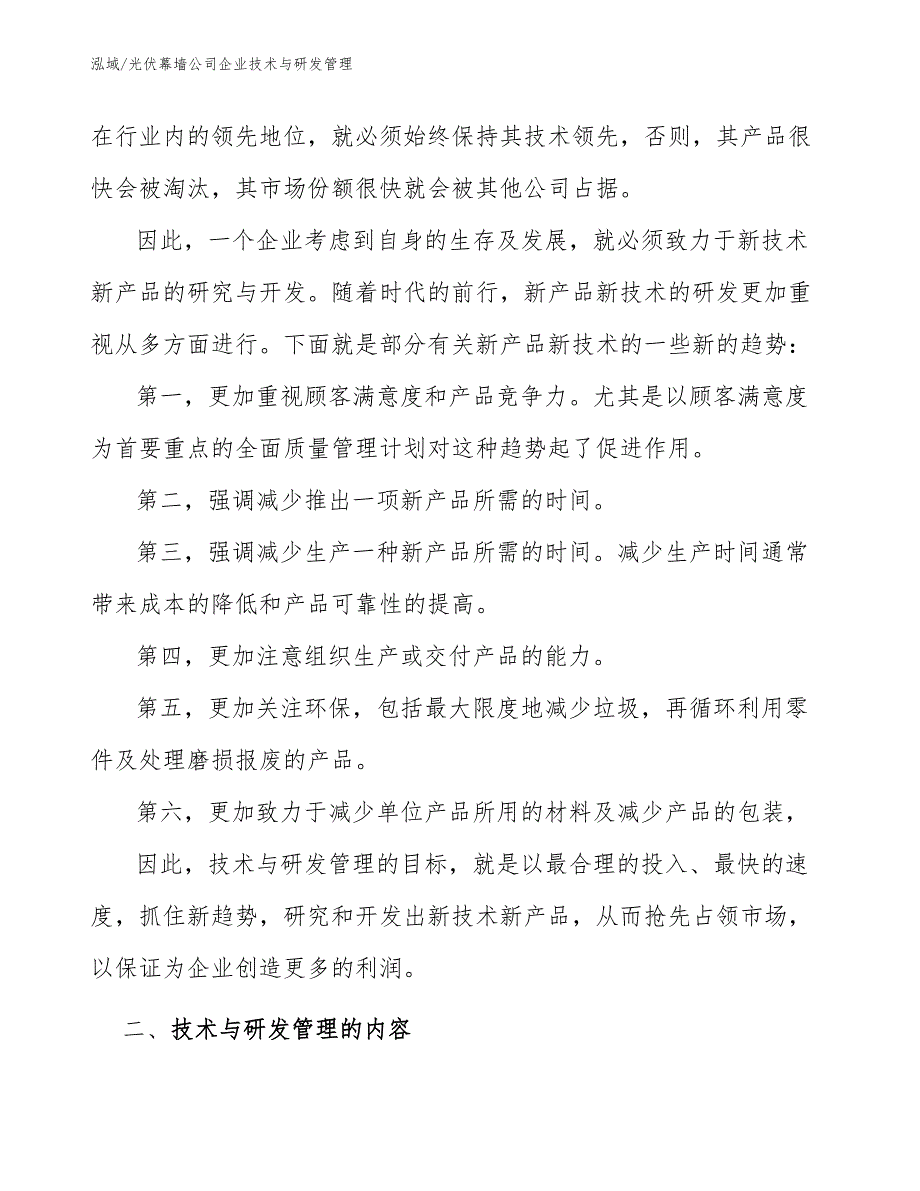 泓域/光伏幕墙公司企业技术与研发管理
在行业内的领先地位，就必须始终保持其技术领先，否则，其产品很
快会被淘汰，其市场份额很快就会被其他公司占据。
因此，一个企业考虑到自身的生存及发展，就必须致力于新技术
新产品的研究与开发。随着时代的前行，新产品新技术的研发更加重
视从多方面进行。下面就是部分有关新产品新技术的一些新的趋势：
第一，更加重视顾客满意度和产品竞争力。尤其是以顾客满意度
为首要重点的全面质量管理计划对这种趋势起了促进作用。
第二，强调减少推出一项新产品所需的时间。
第三，强调减少生产一种新产品所需的时间。减少生产时间通常
带来成本的降低和产品可靠性的提高。
第四，更加注意组织生产或交付产品的能力。
第五，更加关注环保，包括最大限度地减少垃圾，再循环利用零
件及处理磨损报废的产品。
第六，更加致力于减少单位产品所用的材料及减少产品的包装，
因此，技术与研发管理的目标，就是以最合理的投入、最快的速
度，抓住新趋势，研究和开发出新技术新产品，从而抢先占领市场，
以保证为企业创造更多的利润。
二、技术与研发管理的内容